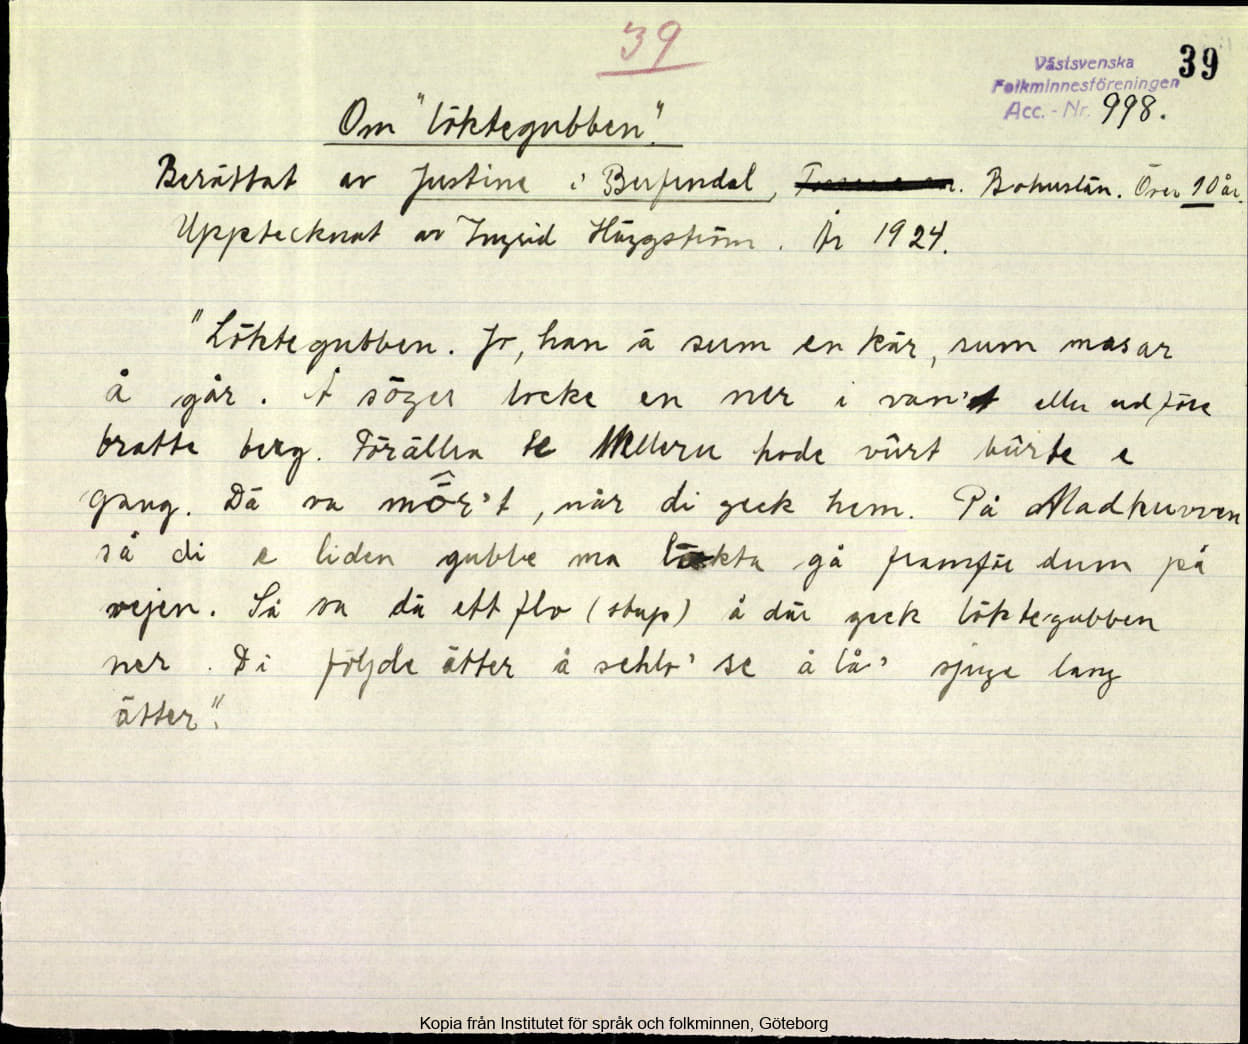 39
Västsvenska 39
Folkminnesföreningen
Acc. - Nr. 998.
Om "löktegubben".
Berättat av Justina i Berfendal, Bohuslän. Över 90 år.
Upptecknat av Ingrid Häggström. År 1924.
"Löktegubben. Jo, han ä sum en kär, sum masar
å går. Å söger locke en ner i van't eller udföre
bratte berg. Förällra te hade vürt bürte e
gang. Dä va mör't, når di geck hem. På Madkuvven
så di e liden gubbe ma lökta gå framför dum på
vejen. Så va dä ett flo (stup) å där geck löktegubben
ner. Di följde ätter å schlo' se å lå' sjuge lang
ätter".
Kopia från Institutet för språk och folkminnen, Göteborg